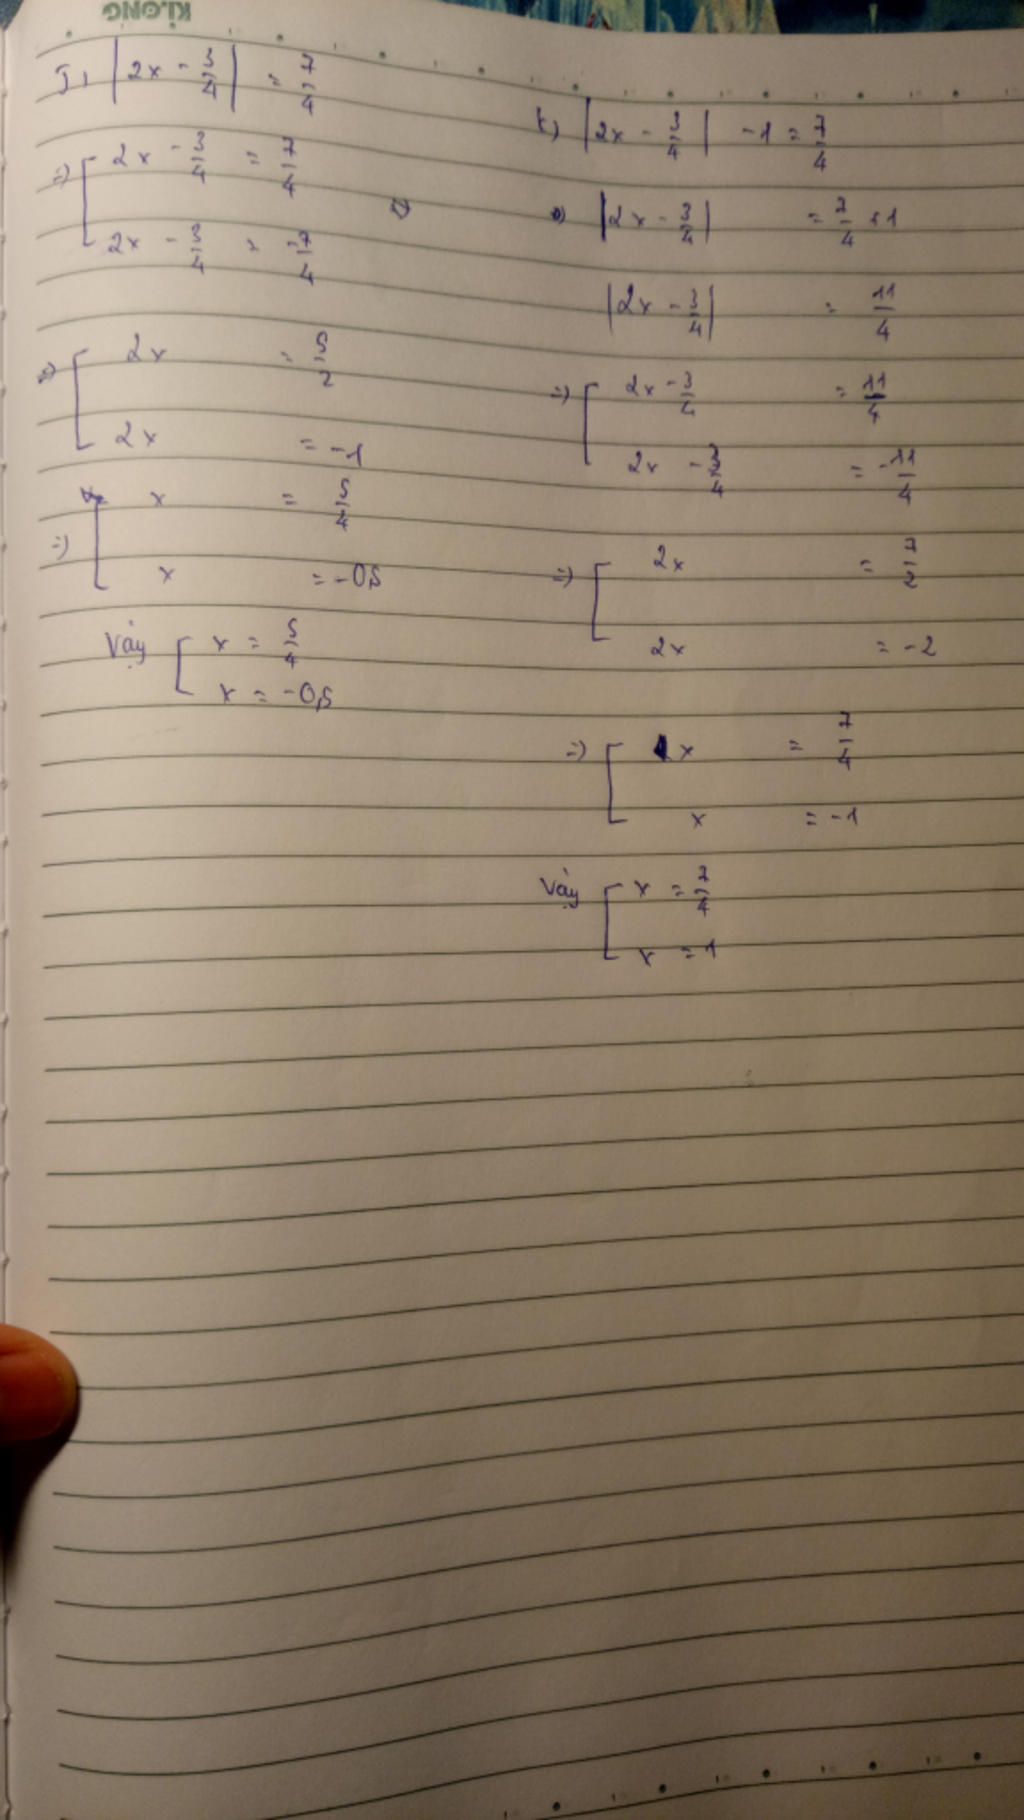 KLONG
J, |2x - 3/4| = 7/4
=) [ 2x - 3/4 = 7/4
2x - 3/4 = -7/4
=) [ 2x = 5/2
2x = -1
=) [ x = 5/4
x = -0,5
Vậy [ x = 5/4
x = -0,5
k) |2x - 3/4| -1 = 7/4
=) |2x - 3/4| = 7/4 + 1
|2x - 3/4| = 11/4
=) [ 2x - 3/4 = 11/4
2x - 3/4 = -11/4
=) [ 2x = 7/2
2x = -2
=) [ x = 7/4
x = -1
Vậy [ x = 7/4
x = 1